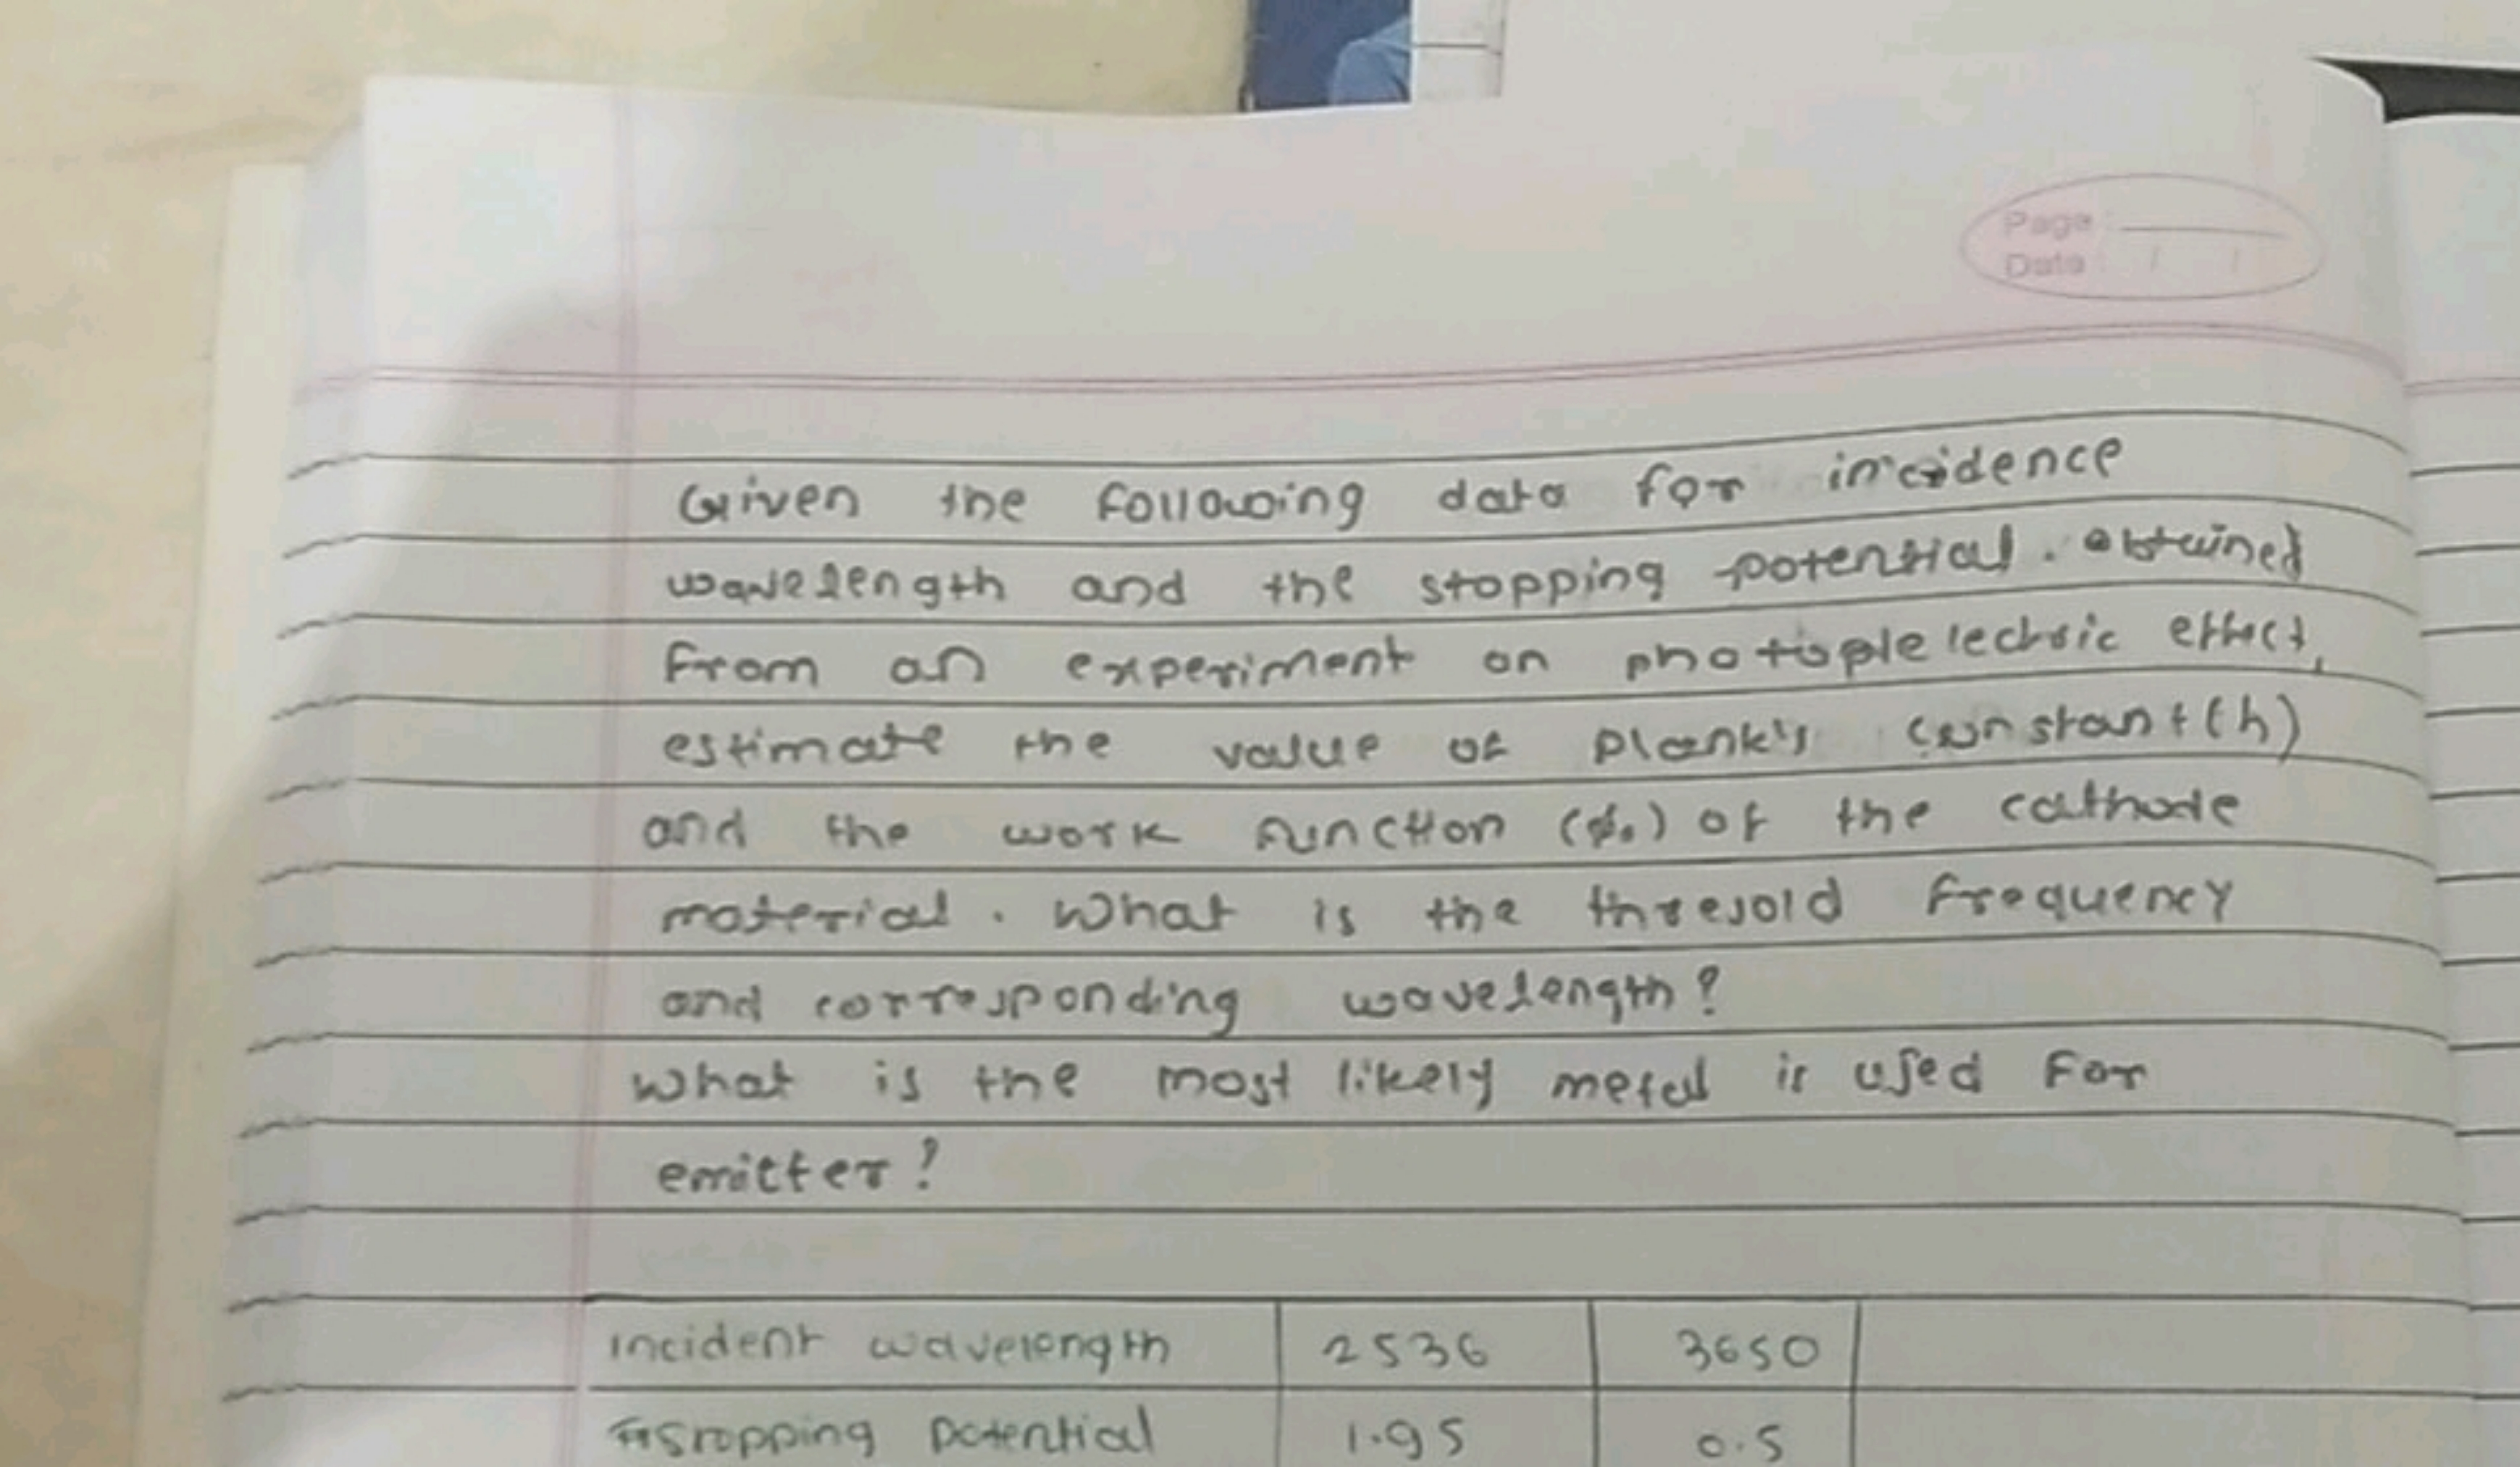 Page :
Date : / /
Given the following data for incidence
wavelength and the stopping potential. obtained
from an experiment on effect,
estimate the value of plank's constant (h)
and the work function (ϕ₀) of the cathode
material. What is the thresold frequency
and corresponding wavelength?
what is the most likely metal is used for
emitter?
Incident wavelength 2536 3650
stopping potential 1.95 0.5